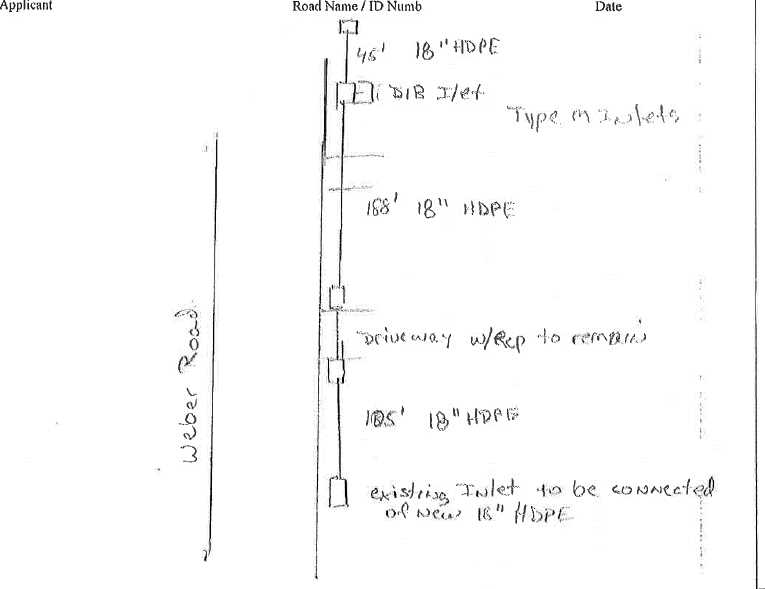 Applicant Road Name / ID Numb Date
45' 18" HDPE
DIB Ilet
Type M Inlets
188' 18" HDPE
Driveway w/Rcp to remain
Weber Road
105' 18" HDPE
existing Inlet to be connected
of New 18" HDPE